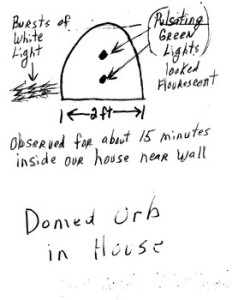 Bursts of
White
Light
Pulsating
Green
Lights
looked
Flourescent
2ft
Observed for about 15 minutes
inside our house near wall
Domed Orb
in House